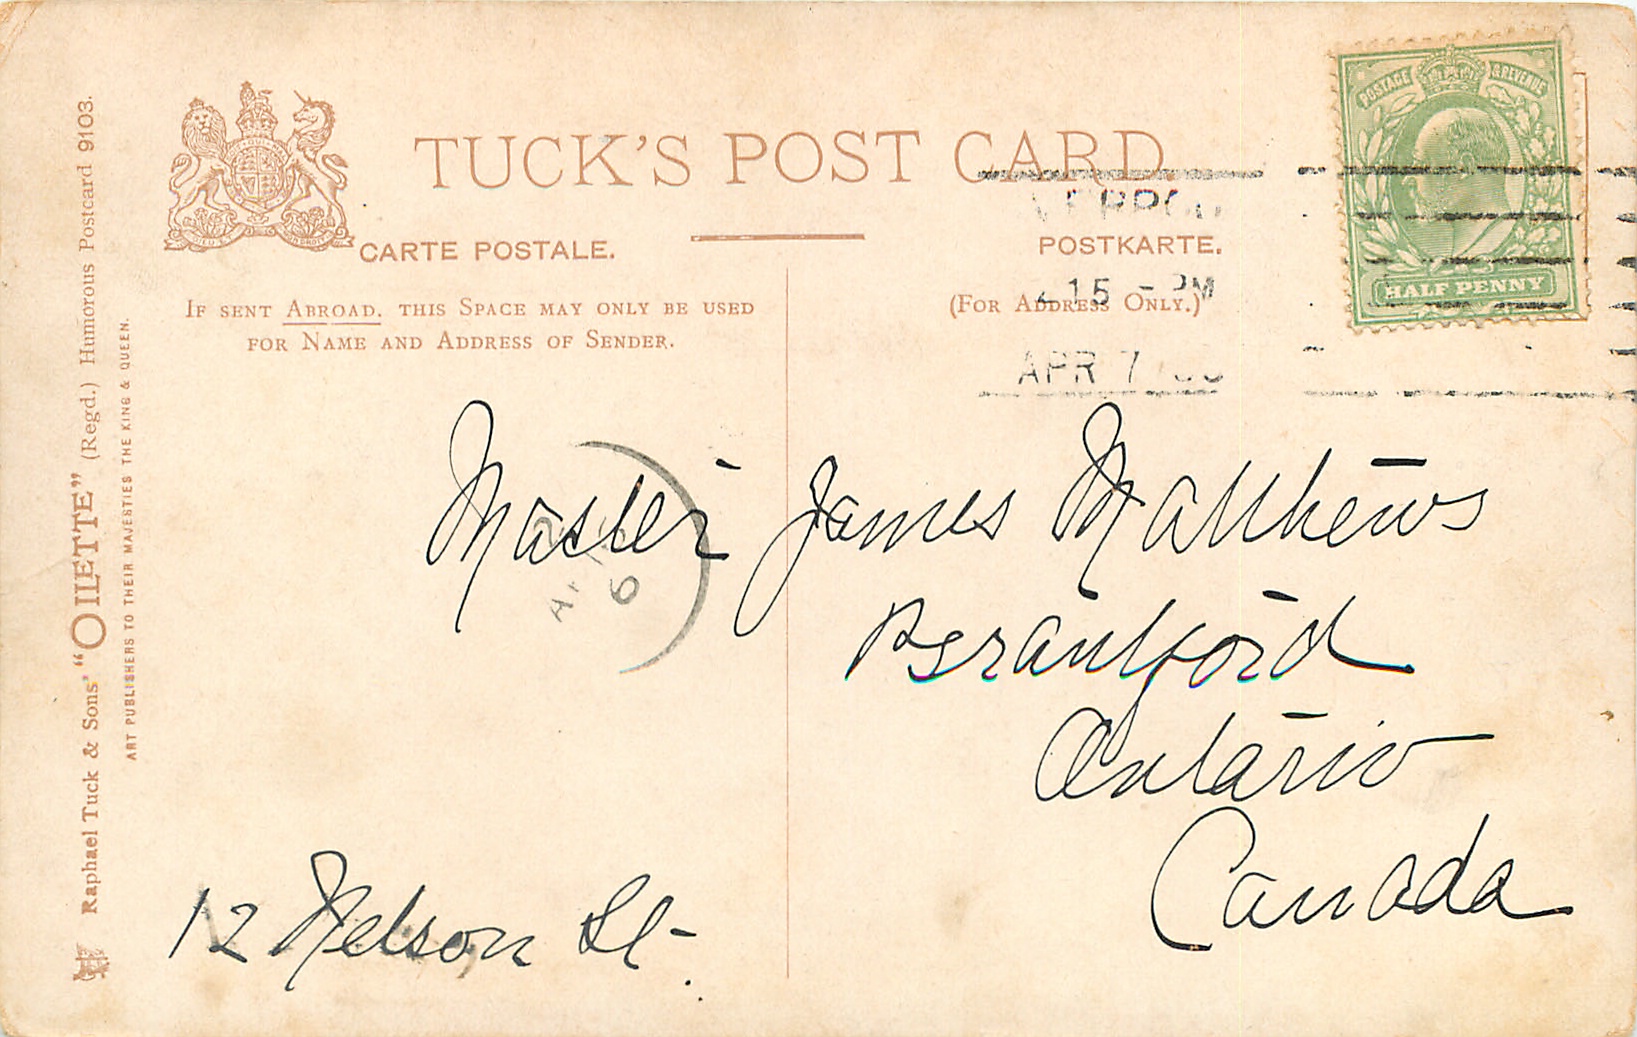 TUCK'S POST CARD.
CARTE POSTALE.
POSTKARTE.
IF SENT ABROAD. THIS SPACE MAY ONLY BE USED
FOR NAME AND ADDRESS OF SENDER.
(FOR ADDRESS ONLY.)
POSTAGE & REVENUE
HALF PENNY
15 - PM
APR 7
Master James Matthews
Brantford
Ontario
Canada
12 Nelson St.
6
Raphael Tuck & Sons' "OILETTE" (Regd.) Humorous Postcard 9103.
ART PUBLISHERS TO THEIR MAJESTIES THE KING & QUEEN.